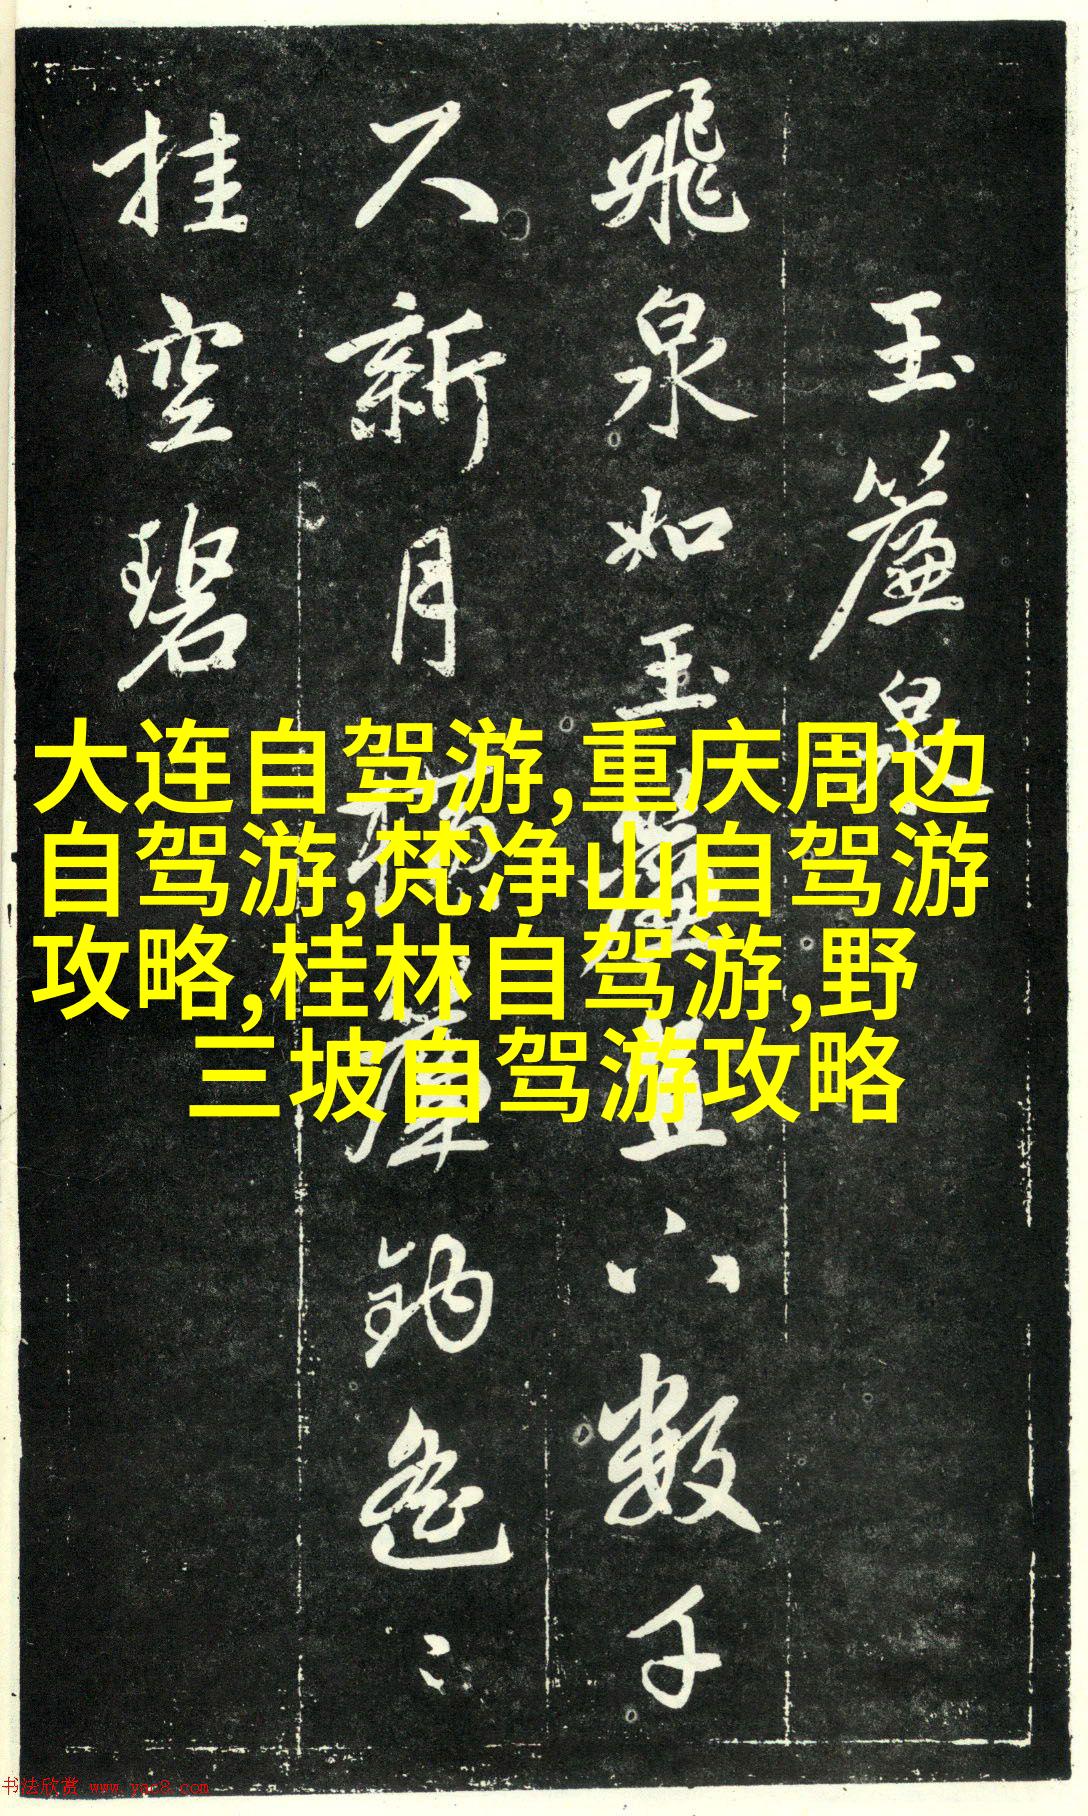 玉簾泉
飛泉如玉簾直下數千
尺新月
簾鈎遙〻
挂空碧
大连自驾游,重庆周边
自驾游,梵净山自驾游
攻略,桂林自驾游,野
三坡自驾游攻略
书法欣赏 www.yac8.com